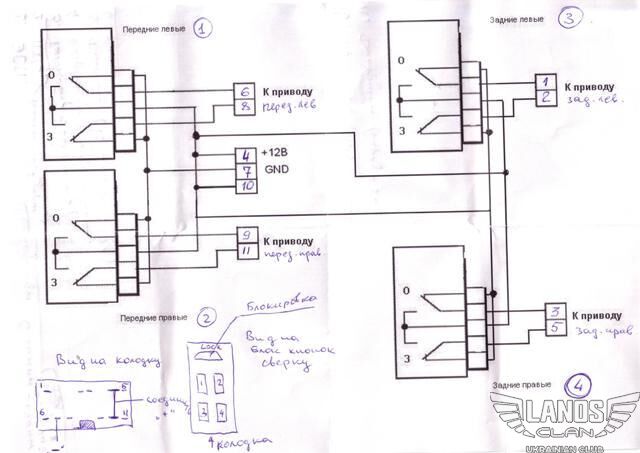 Передние левые 1
0
З
6 К приводу
8 перед. лев
4 +12В
7 GND
10
Задние левые 3
0
З
1 К приводу
2 зад. лев.
0
З
9 К приводу
11 перед. прав
Передние правые 2
0
З
3 К приводу
5 зад. прав.
Задние правые 4
Блокировка
Вид на колодку
1 5
6 11
соедин.
"+"
LOCK
1 2
3 4
Вид на
блок кнопок
сверху
колодка
LANOS
CLAN
UKRAINIAN CLUB